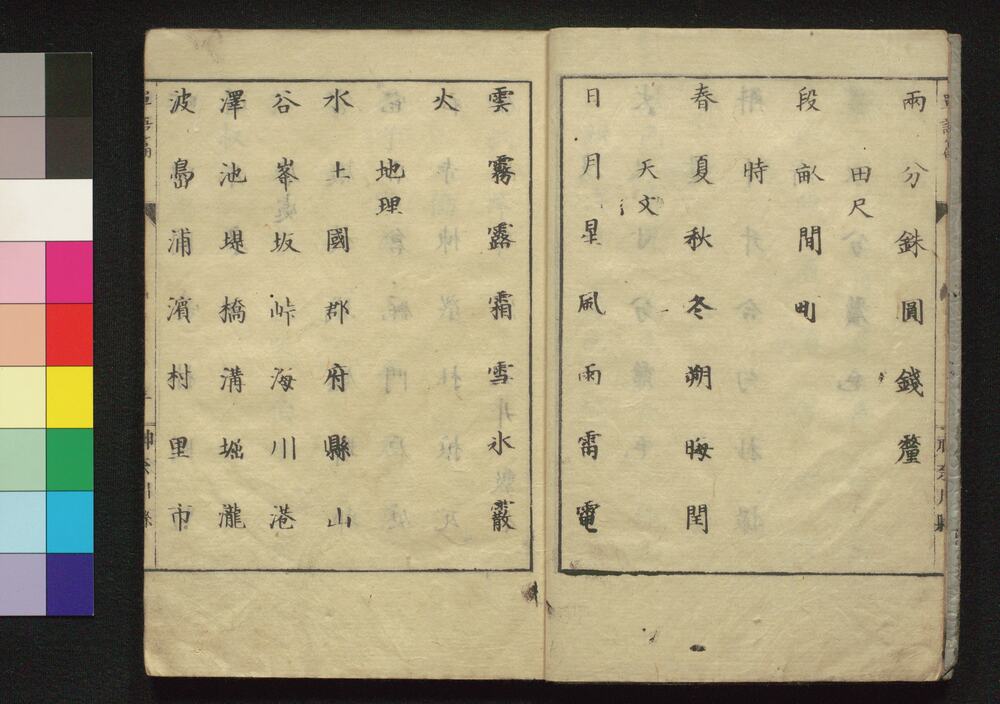 兩分銖圓錢釐
田尺
段畝間町
時
春夏秋冬朔晦閏
天文
日月星風雨雷電
雲霧露霜雪氷霰
火
地理
水土國郡府縣山
谷峯坂峠海川港
澤池堤橋溝堀瀧
波島浦濱村里市